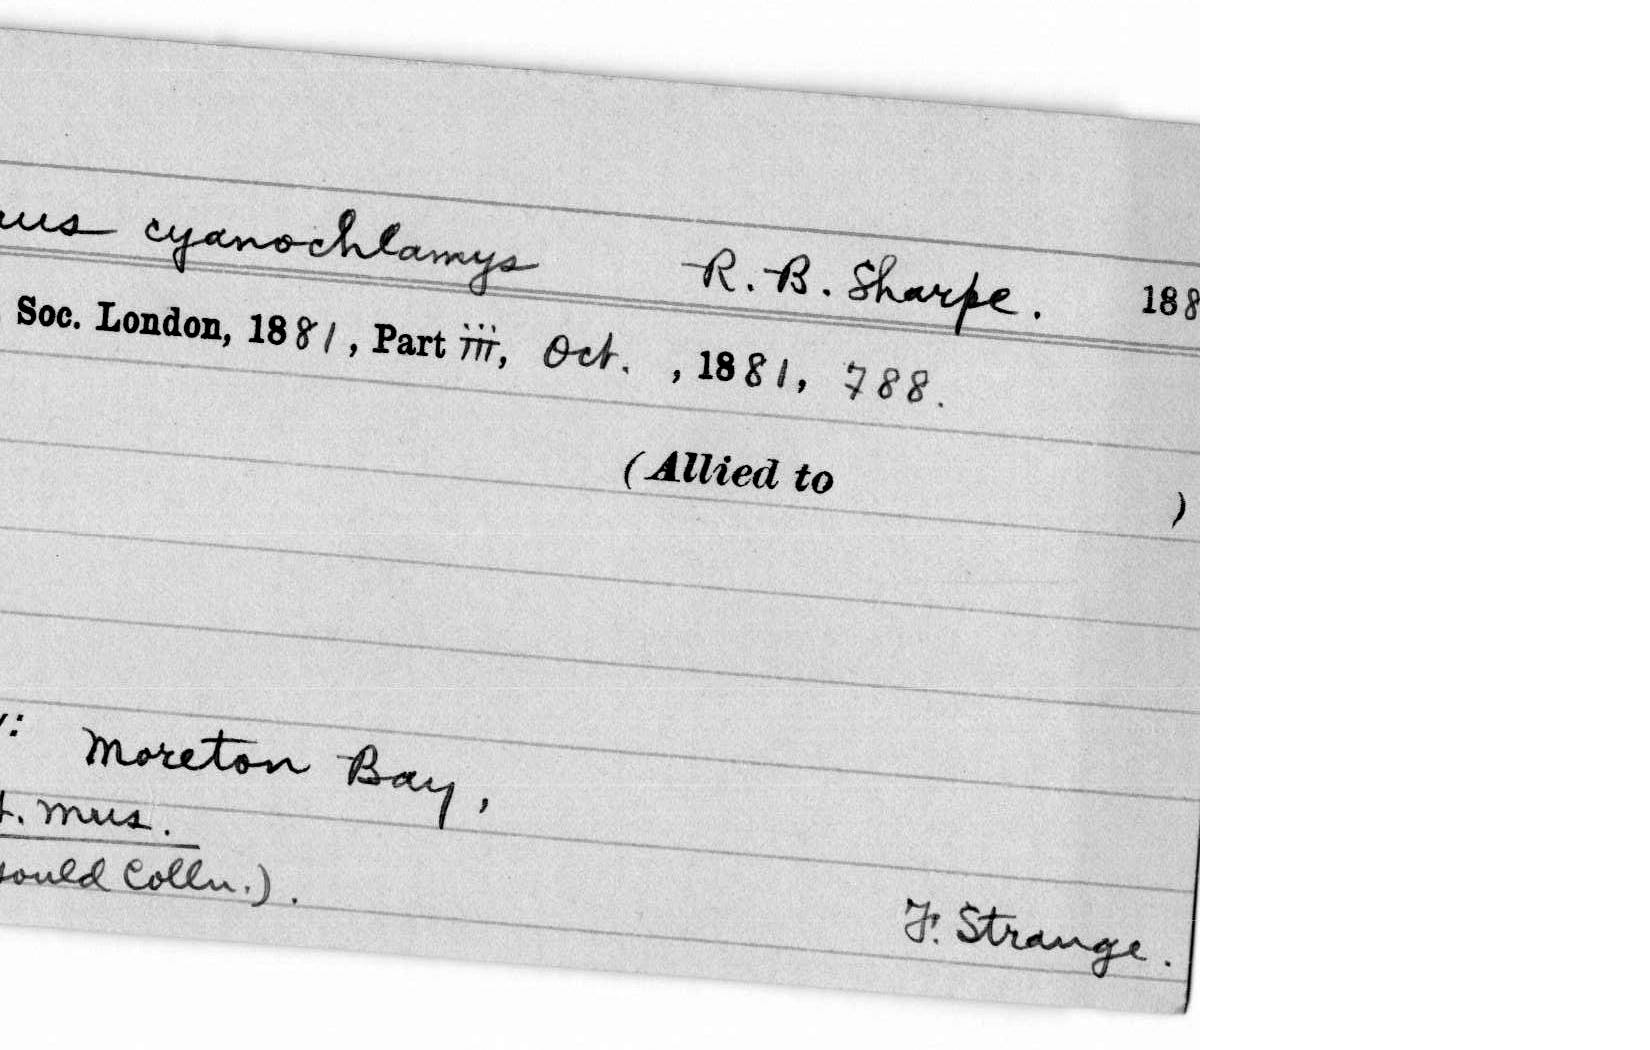 cyanochlamys R. B. Sharpe. 188
Soc. London, 1881, Part iii, Oct. , 1881, 788.
(Allied to )
Moreton Bay,
Mus.
Colln.).
F. Strange.